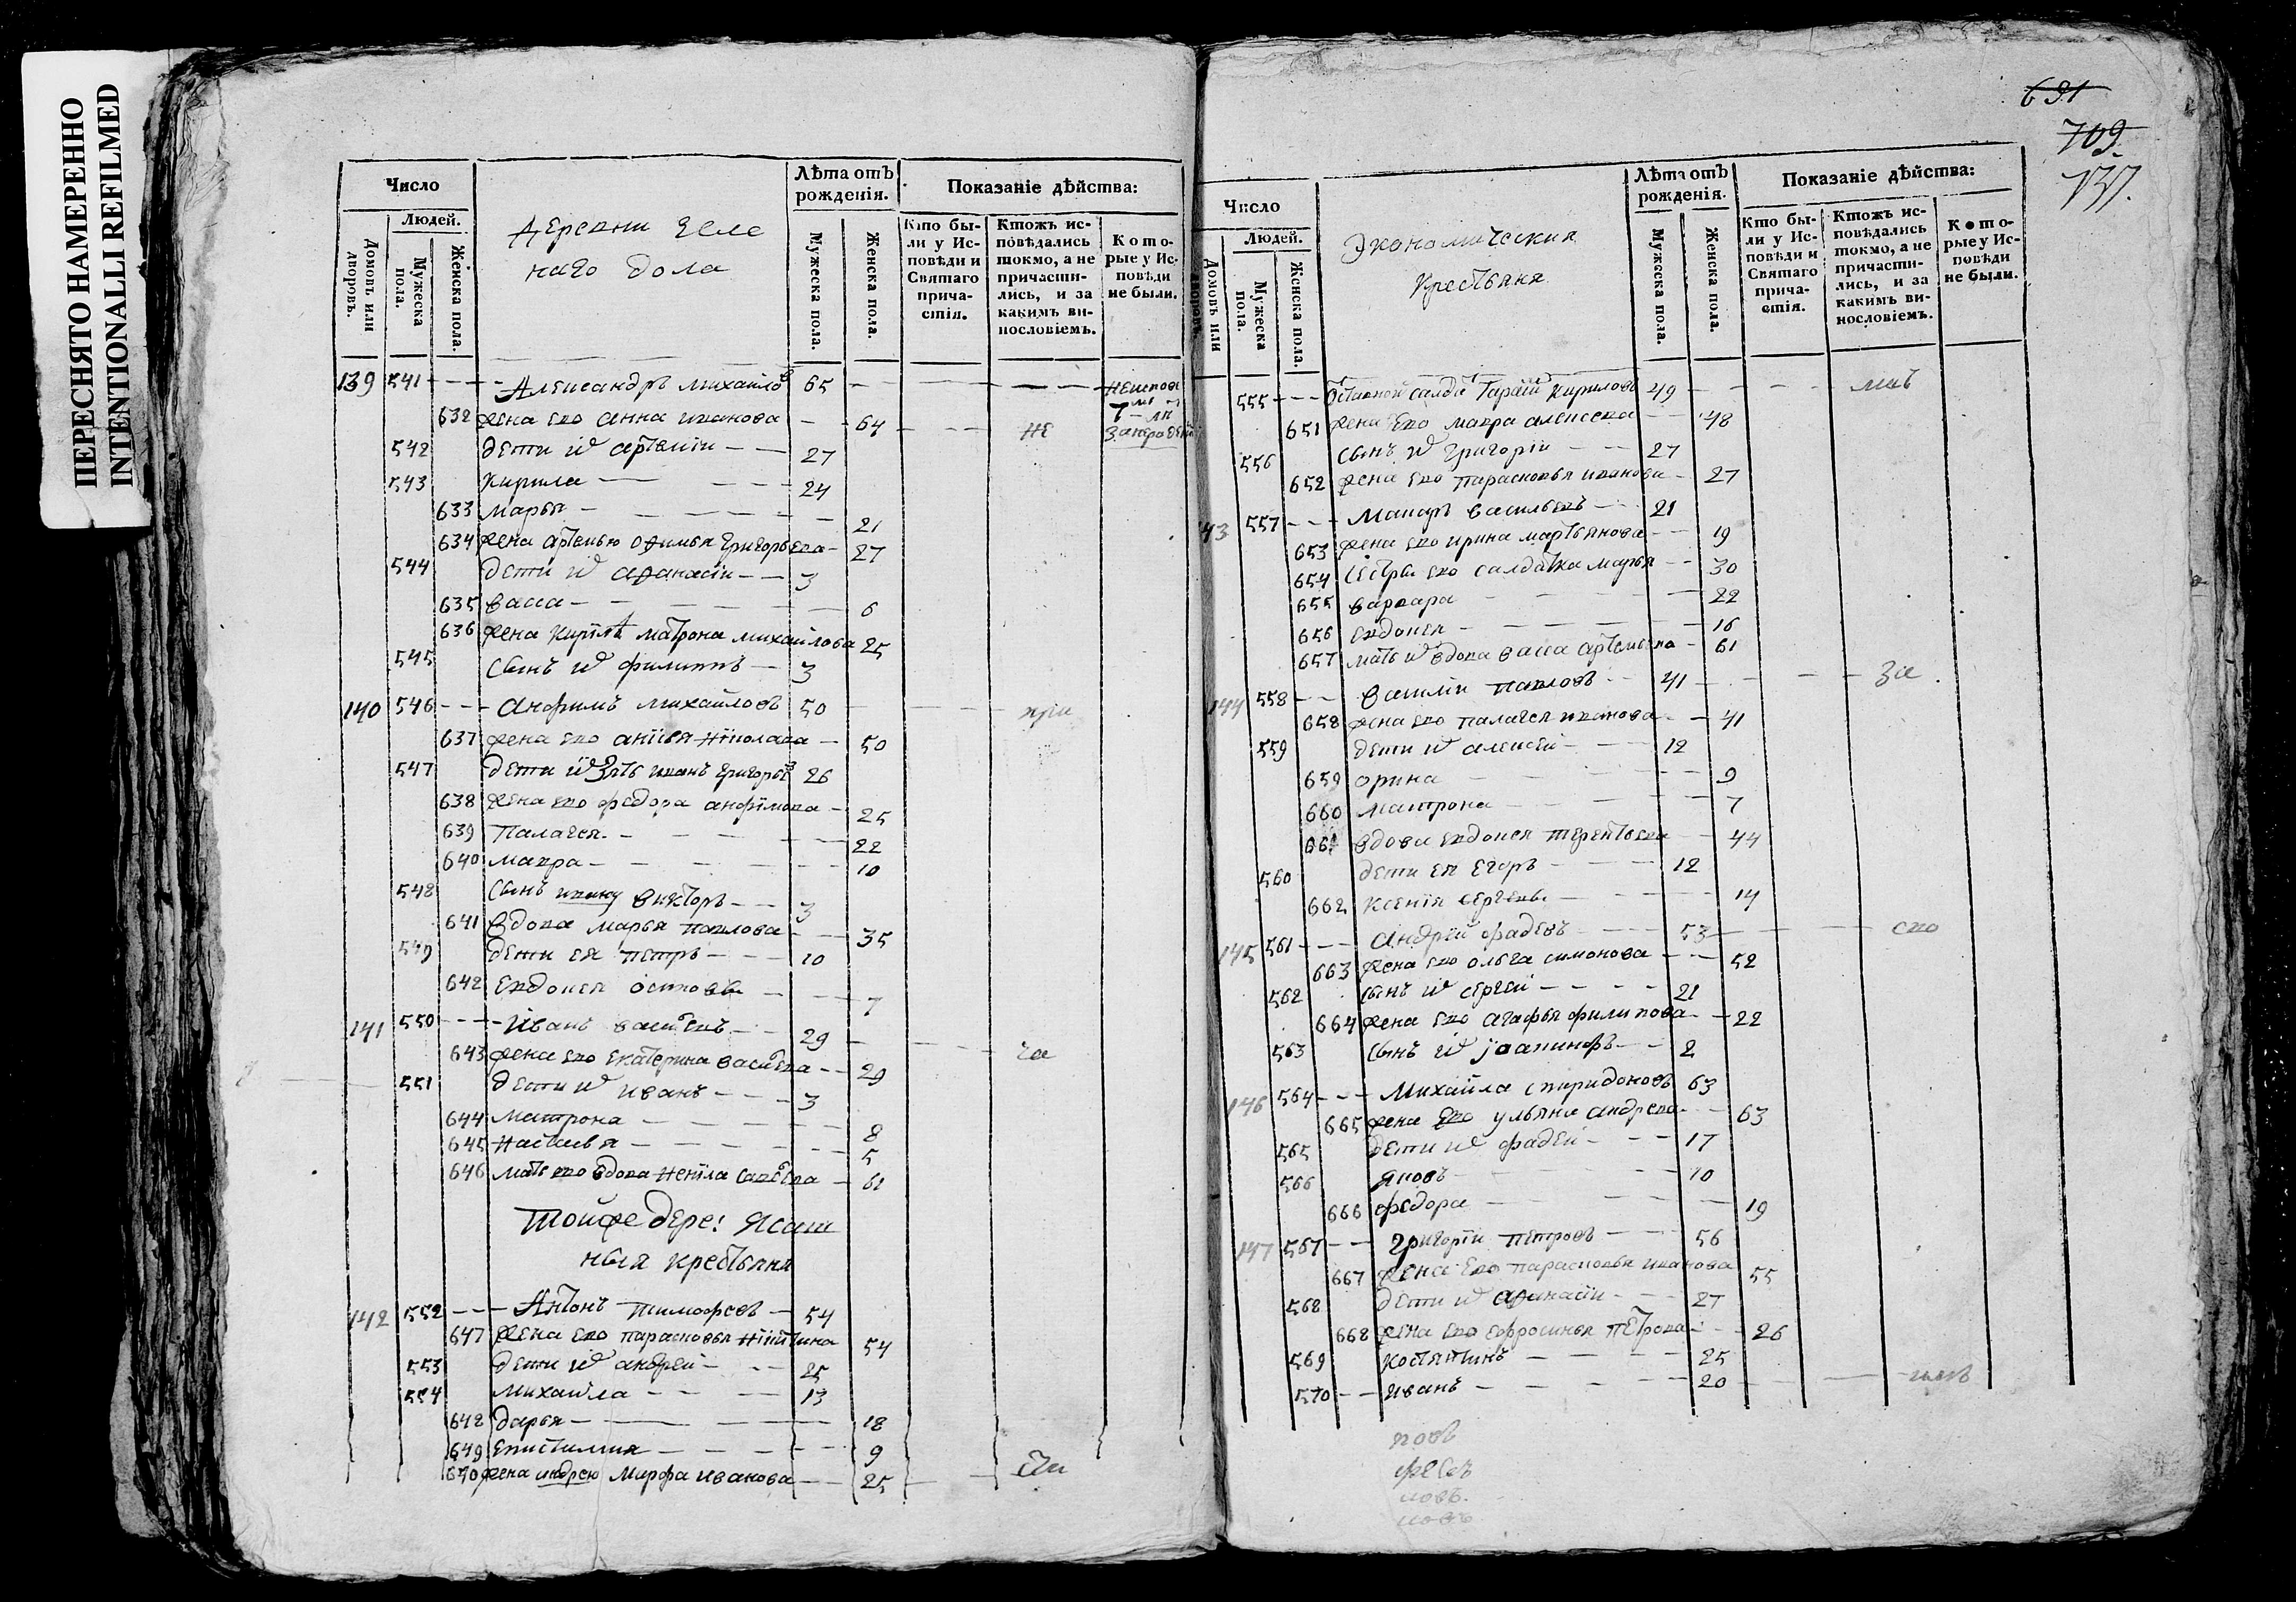 ПЕРЕСНЯТО НАМЕРЕННО
INTENTIONALLI REFILMED
691
709.
737.
Число
Людей.
Домовъ или дворовъ.
Мужеска пола.
Женска пола.
Деревни Зеле
наго дола
Лѣта отъ рожденія.
Мужеска пола.
Женска пола.
Показаніе дѣйства:
Кто бы-
ли у Ис-
повѣди и
Святаго
прича-
стія.
Ктожъ ис-
повѣдались
токмо, а не
причасти-
лись, и за
какимъ ви-
нословіемъ.
Кото-
рые у Ис-
повѣди
не были.
139 541 - - - Александръ Михайловъ 65
632 жена ево Анна Иванова - 64 - - - не
542 дети их Артемии - - 27
543 Кирила - - - 24
633 Марья - - - 21
634 жена Артемью Офимья Григорьева - 27
544 дети их Афанасіи - - 3
635 Васса - - - 6
636 жена Кирилѣ Матрона Михайлова 25
545 сынъ их Филиппъ - 3
140 546 - - - Анфимъ Михайловъ 50 - - - при
637 жена ево Анисья Николаева - 50
547 дети их зять Иванъ Григорьев 26
638 жена ево Федора Анфимова - 25
639 Палагея - - - 22
640 Мавра - - - 10
548 сынъ Ивану Викторъ - - 3
641 вдова Марья Павлова - - 35
549 дети ея Петръ - - - 10
642 Евдокея Осипова - - - 7
141 550 - - - Иванъ Васильевъ - - 29 - - - ча
643 жена ево Екатерина Васильева - - 29
551 дети их Иванъ - - - 3
644 Матрона - - - 8
645 Настасья - - - 5
646 мать ево вдова Ненила Савельева - 61
Тойже дере: Ясаш
ныя крестьяня
142 552 - - - Антонъ Тимофеевъ - 54
647 жена ево Парасковья Никитина 54
553 дети их Андрей - - - 25
554 Михайла - - - 13
648 Дарья - - - 18
649 Епистимия - - - 9
650 жена Андрею Марфа Иванова - - 25 - - сти
Число
Людей.
Домовъ или дворовъ.
Мужеска пола.
Женска пола.
Экономическия
Крестьяня
Лѣта отъ рожденія.
Мужеска пола.
Женска пола.
Показаніе дѣйства:
Кто бы-
ли у Ис-
повѣди и
Святаго
прича-
стія.
Ктожъ ис-
повѣдались
токмо, а не
причасти-
лись, и за
какимъ ви-
нословіемъ.
Кото-
рые у Ис-
повѣди
не были.
555 - - - Кириловъ 49
651 жена ево Мавра Алексеева - - 48
556 сынъ их Григоріи - - 27
652 жена ево Парасковья Иванова - 27
43 557 - - - Макаръ Васильевъ - - 21
653 жена ево Ирина Мартьянова - - 19
654 сестры ево салдатка Марья - - 30
655 Варвара - - - 22
656 Евдокея - - - 16
657 мать их вдова Васса Артемьева - 61
144 558 - - Василіи Павловъ - - 41 - - - за
658 жена ево Палагея Иванова - - 41
559 дети их Алексей - - - 12
659 Орина - - - 9
660 Матрона - - - 7
661 вдова Евдокея Терентьева - - 44
560 дети ея Егоръ - - - 12
662 Ксенія Сергеева - - - 14
145 561 - - - Андрей Фадеевъ - - - 53 - - - ево
663 жена ево Ольга Симонова - - - 52
562 сынъ их Сергей - - - 21
664 жена ево Агафья Филипова - - 22
563 сынъ их Іоакинфъ - - 2
146 564 - - - Михайла Спиридоновъ 63
665 жена ево Ульяна Андреева - - 63
565 дети их Фадей - - - 17
566 Яковъ - - - 10
666 Федора - - - 19
147 567 - - Григоріи Петровъ - - - 56
667 жена ево Парасковья Иванова 55
568 дети их Афанасіи - - - 27
668 жена ево Ефросинья Петрова - - - 26
569 Костянтинъ - - - 25
570 - - Иванъ - - - 20